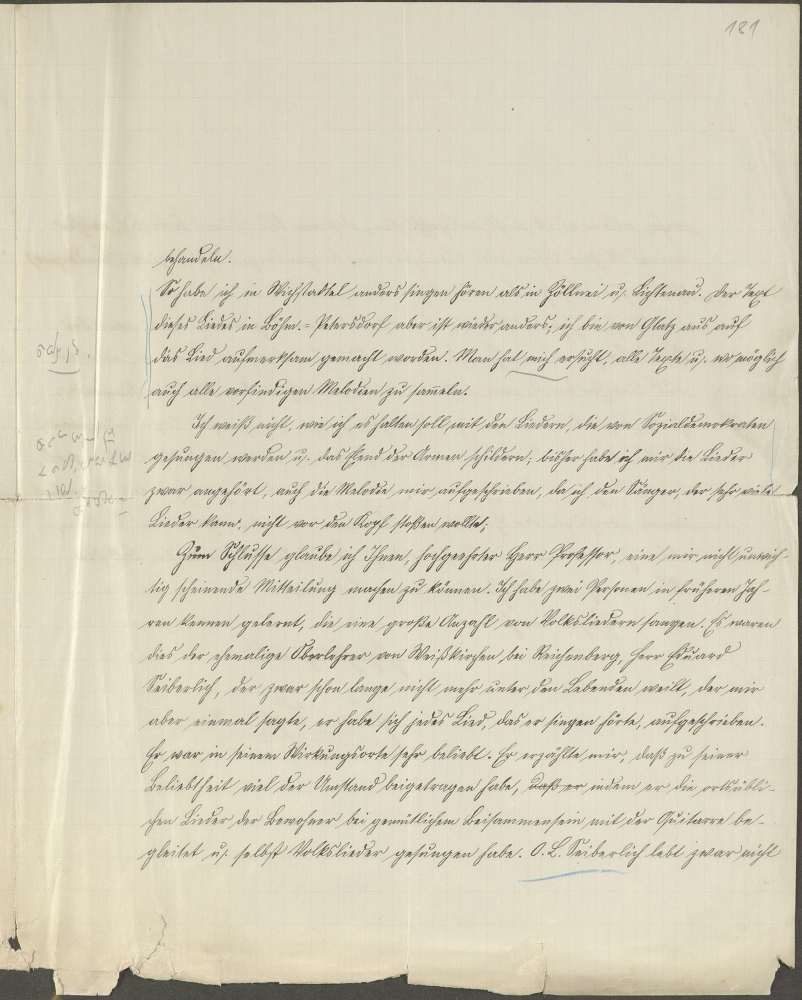 181
behandeln.
So habe ich in Wichstadtel anders singen hören als in Zöllnei u. Lichtenau. Der Text
dieses Liedes in Böhm.-Petersdorf aber ist wieder anders; ich bin von Glatz aus auf
das Lied aufmerksam gemacht worden. Man hat mich ersucht, alle Texte u. wo möglich
auch alle vorfindigen Melodien zu sam̄eln.
Ich weiß nicht, wie ich es halten soll mit den Liedern, die von Sozialdemokraten
gesungen werden u. das Elend der Armen schildern; bisher habe ich mir die Lieder
zwar angehört, auch die Melodie mir aufgeschrieben, da ich den Sänger, der sehr viele
Lieder kann, nicht vor den Kopf stoßen wollte;
Zum Schlusse glaube ich Ihnen, hochgeehrter Herr Professor, eine mir nicht unwich-
tig scheinende Mitteilung machen zu können. Ich habe zwei Personen in früheren Jah-
ren kennen gelernt, die eine große Anzahl von Volksliedern sangen. Es waren
dies der ehemalige Oberlehrer von Weißkirchen bei Reichenberg Herr Eduard
Seiberlich, der zwar schon lange nicht mehr unter den Lebenden weilt, der mir
aber einmal sagte, er habe sich jedes Lied, das er singen hörte, aufgeschrieben.
Er war in seinem Wirkungsorte sehr beliebt. Er erzählte mir, daß zu seiner
Beliebtheit viel der Umstand beigetragen habe, daß er indem er die ortsübli-
chen Lieder der Bewohner bei gemütlichem Beisammensein mit der Guitarre be-
gleitet u. selbst Volkslieder gesungen habe. O. L. Seiberlich lebt zwar nicht